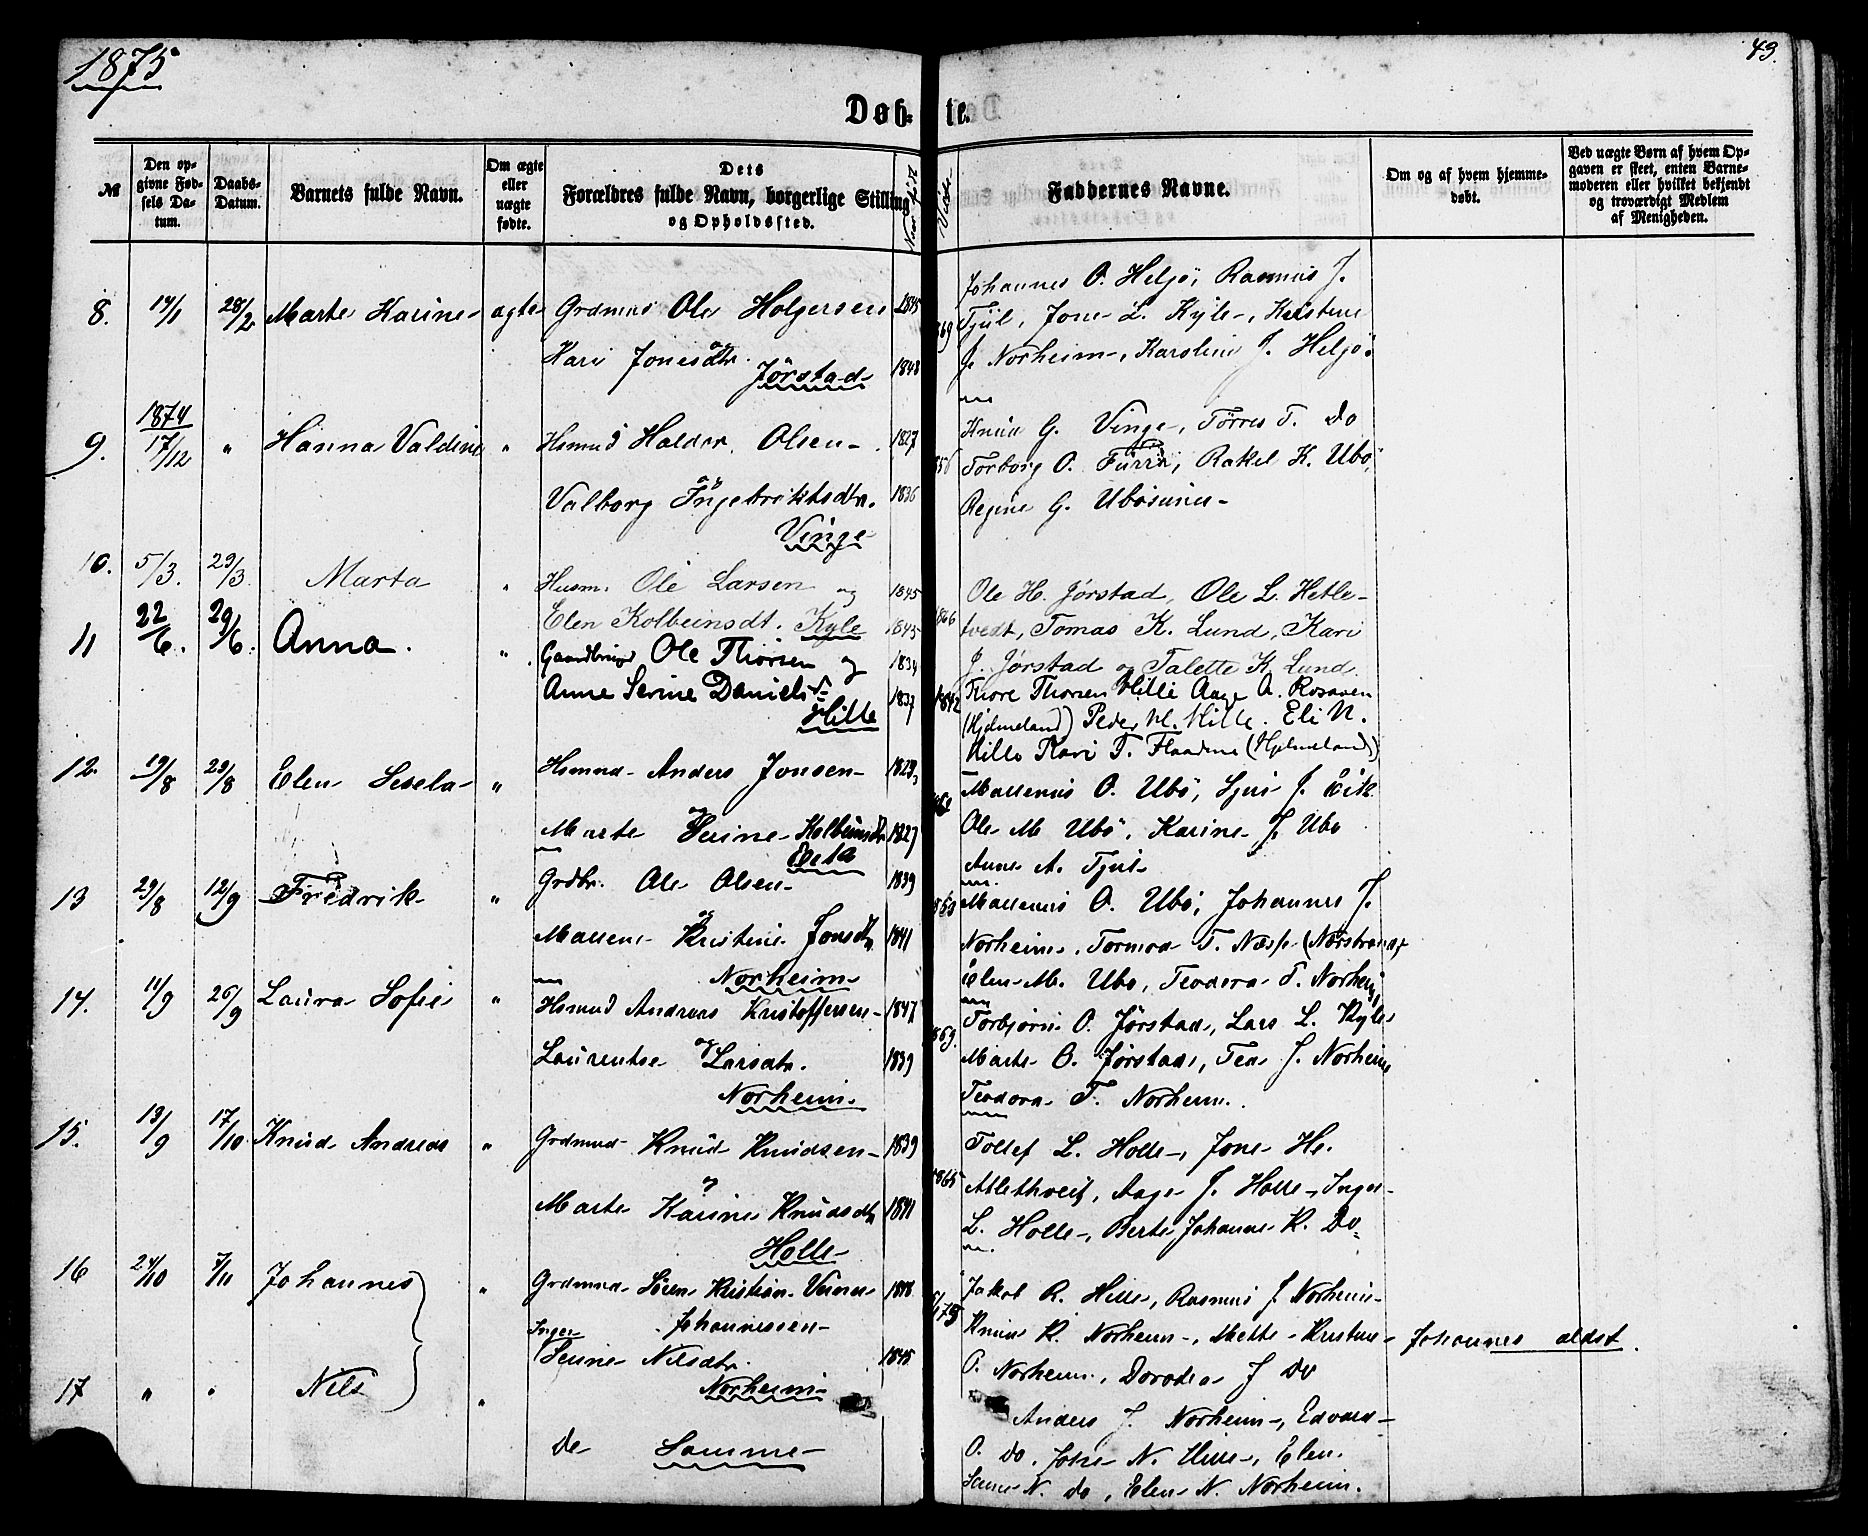 1875
43.
Døb- te.
№
Den opgivne Fødsels Datum.
Daabs-Datum.
Barnets fulde Navn.
Om ægte eller uægte fødte.
Dets Forældres fulde Navn, borgerlige Stilling og Opholdssted.
Naar født
Viede
Faddernes Navne.
Om og af hvem hjemmedøbt.
Ved uægte Børn af hvem Opgaven er skeet, enten Barnemoderen eller hvilket bekjendt og troværdigt Medlem af Menigheden.
8. 14/1 28/2 Marte Karine ægte Grdmnd Ole Holgersen 1845
og
Kari Jonesdtr. 1848
Jørstad
869
Johannes O. Heljö, Rasmus J.
Tjul, Jone L. Kyle, Kristine
J. Norheim, Karoline J. Heljö
1874
9. 17/12 " Hanna Valdine " Hsmnd Haldor Olsen 1827
og
Valborg Ingebriktsdtr. 1836
Vinge
856
Knud G. Vinge, Törres T. Do
Torborg O. Furre, Rakel K. Ubö,
Regine G. Ubösunes
10. 5/3. 29/3. Marta " Husm. Ole Larsen og 1845
Elen Kolbeinsdt. Kyle 1843
1866
Ole H. Jørstad, Ole L. Hetle-
tvedt, Tomas K. Lund, Kari
J. Jørstad og Talette K. Lund
11 22/6 29/6. Anna. " Gaardbruger Ole Thorsen og 1834
Anne Serine Danielsd. 1837
Hille
1842
Thore Thorsen Hille Aage A. Rosaven
(Hjelmeland) Peder N. Hille. Eli N.
Hille Kari T. Flaadene (Hjelmeland)
12. 19/8 29/8 Elen Sesela " Hsmnd Anders Jonsen 1823
og
Marte Serine Kolbeinsdtr 1827
Eeta
Massenius O. Ubö, Sjur J. Eik
Ole M Ubö, Karine J. Ubo
Anne A. Tjul
13 29/8 12/9 Fredrik " Grdbr. Ole Olsen 1839
og
Massene Kristine Jonsdtr 1841
Norheim
863
Massenius O. Ubö, Johannes J.
Norheim, Tormod T. Næsse (Nærstrand),
Elen M. Ubo, Teodora T. Norheim
14. 11/9 26/9 Laura Sofie " Hsmnd Andreas Kristoffersen 1847
og
Laurentse Larsdtr. 1839
Norheim
869.
Torbjörn O. Jørstad, Lars L. Kyle
Marte O. Jørstad, Tea J. Norheim
Teodora T. Norheim.
15. 13/9 17/10 Knud Andreas " Grdmnd Knud Knudsen 1839
og
Marte Karine Knudsdtr 1841
Holle
865
Tollef L. Holle, Jone H.
Atlethveit, Aage J. Holle, Inger
L. Holle, Berte Johanne K. Do
16 24/10 7/11 Johannes " Grdmnd Sören Kristian Verner 1848
Johannessen
Inger
Serine Nilsdtr. 1845
Norheim
Jakob R. Hille, Rasmus J Norheim
Knud K. Norheim, Mette Kristine
O. Norheim, Dorodea J Do
Johannes ældst.
17 " " Nils " De Samme
Anders J. Norheim, Edvard
O. do, Jone N. Hille, Elen
Lanne N. do, Elen N. Norheim.